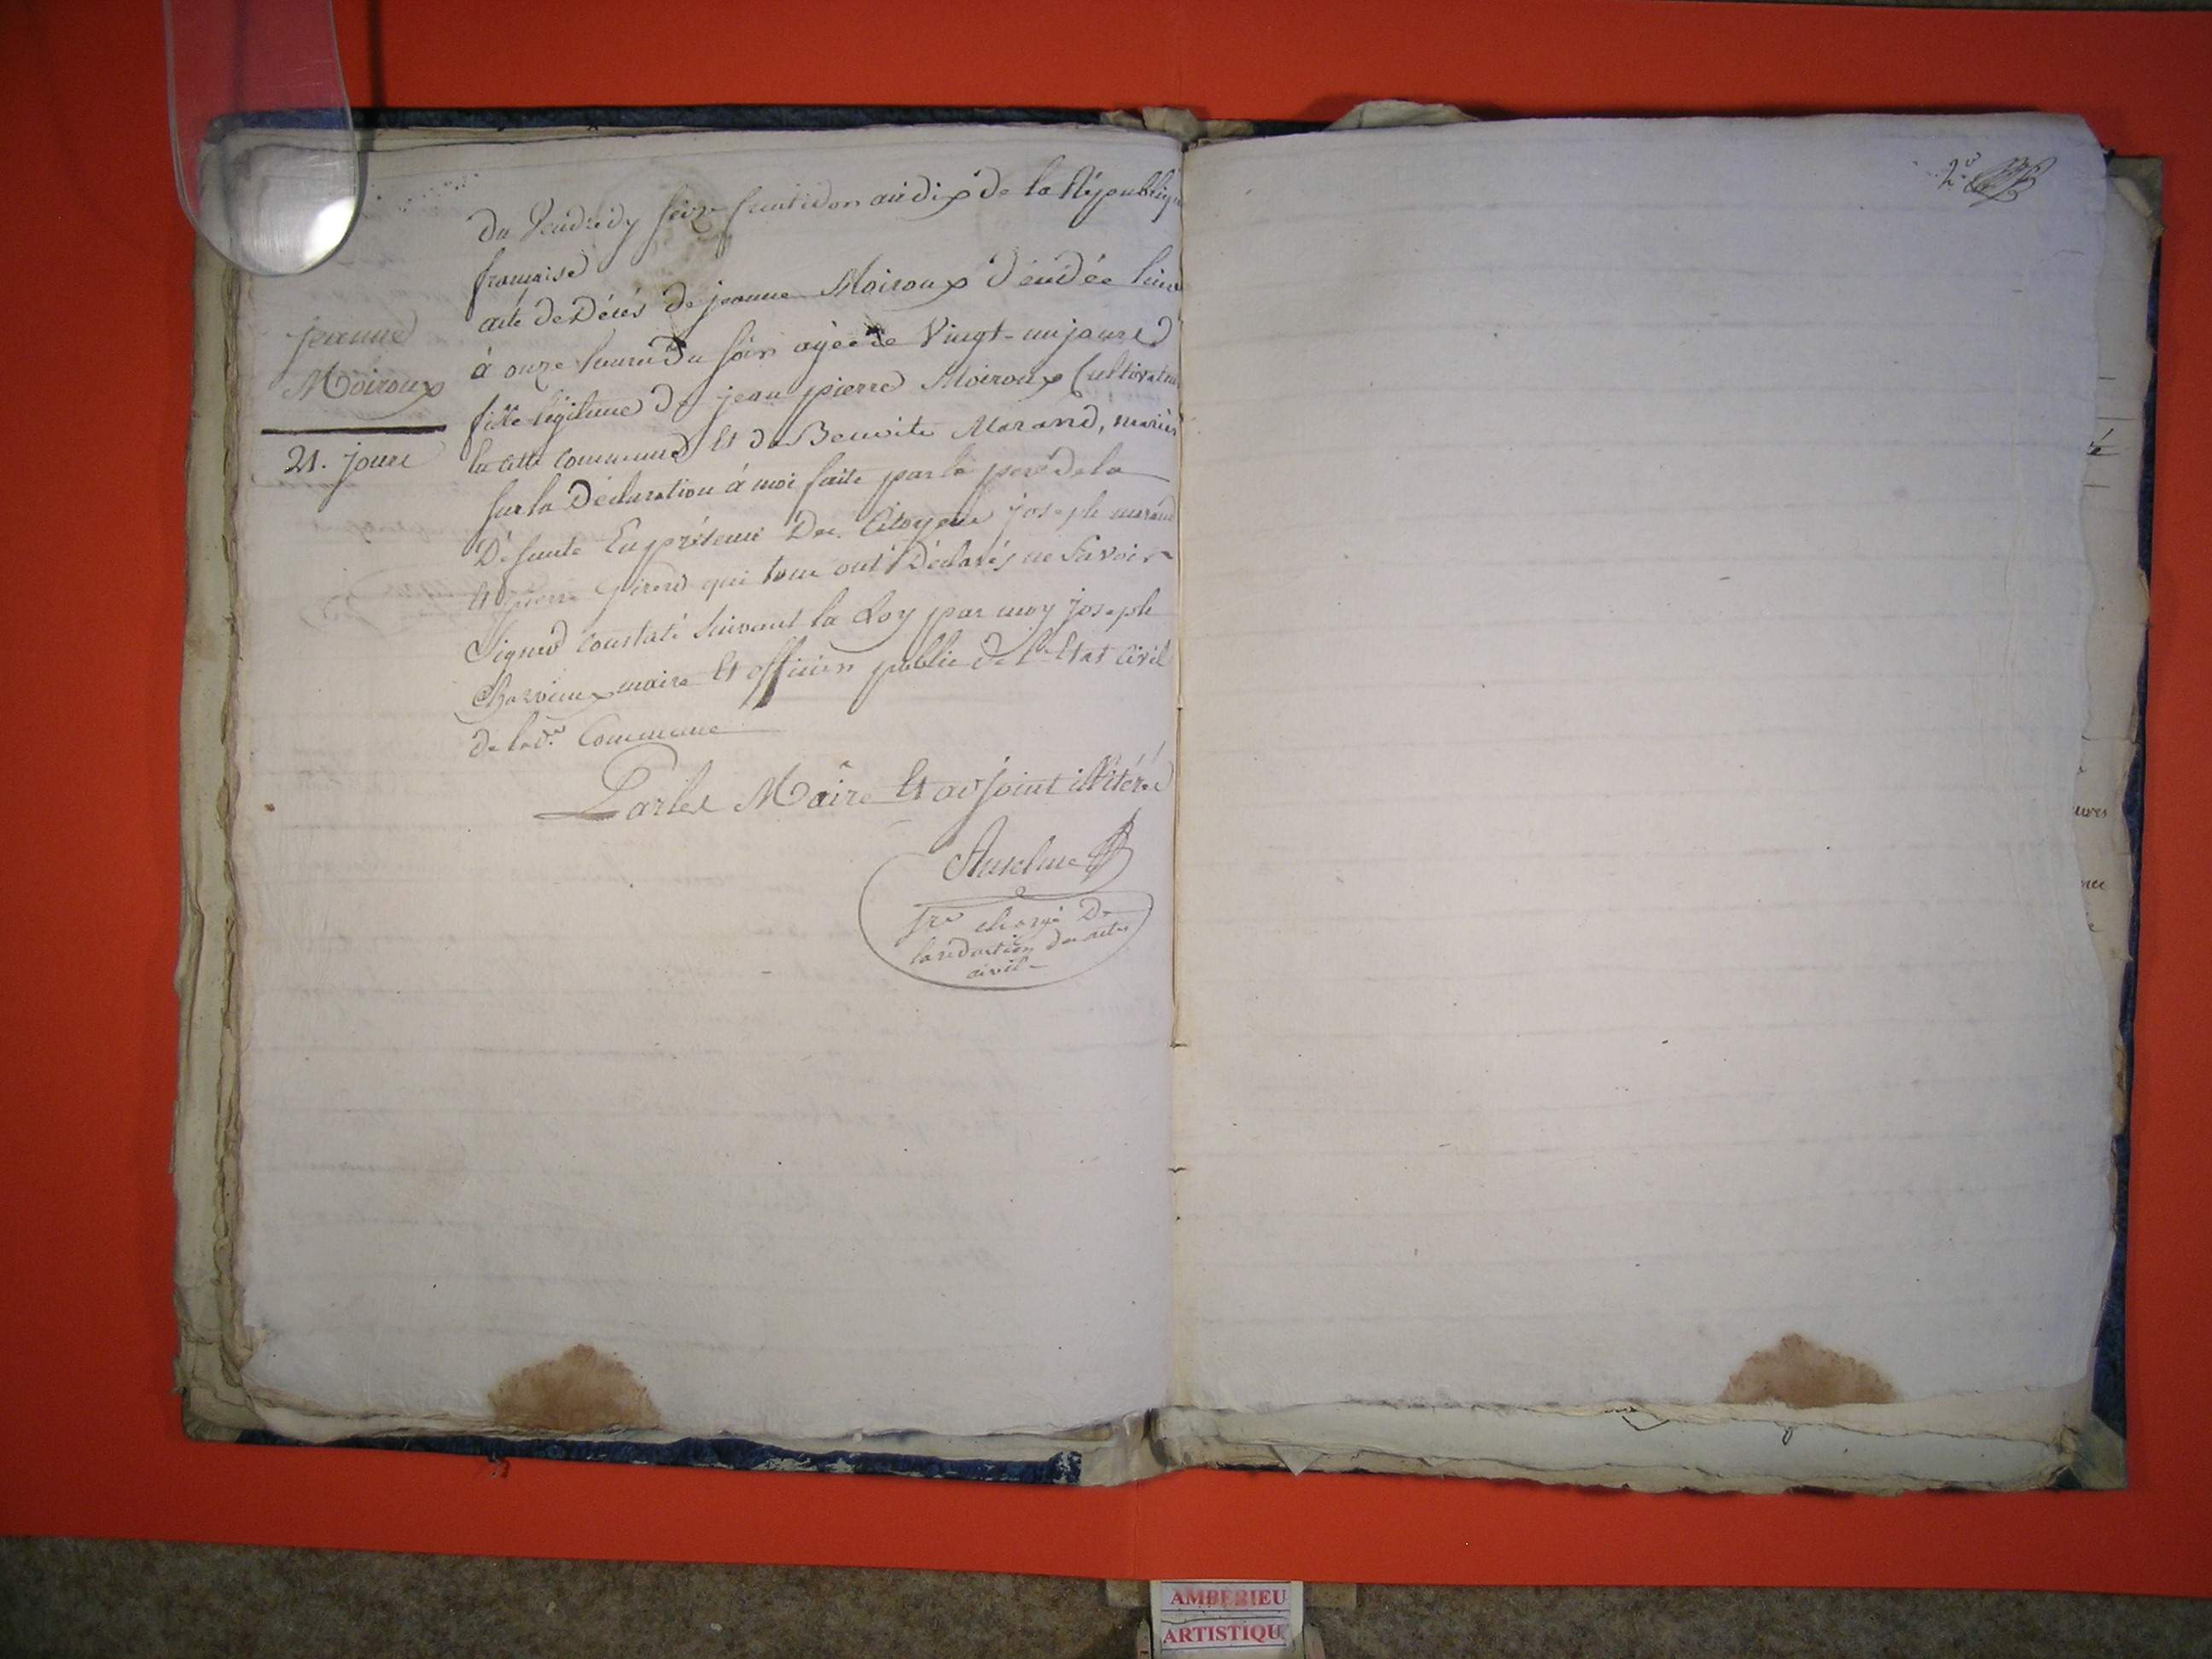 jeanne
Moiroux
21. jours
du Vendredy seize fructidor an dix de la Républiq
française
acte de Décés de jeanne Moiroux décédée hier
à onze heures du soir agée de Vingt-un jours
fille légitime de jean pierre Moiroux Cultivateu
en cette Commune Et de Benoite Marand, mariés
sur la Déclaration à moi faite par le pere de la
Défunte En présence Des Citoyens joseph marand
Et pierre qui tous ont Déclarés ne Savoir
Signer Constaté Suivant la Loy par moy joseph
Charvieux maire Et officier public de l'Etat Civil
de lad.e Commune
Par les Maire Et adjoint illitérés
Anselme
sre chargé De
la rédaction des actes
civils
2e
ures
nce
AMBERIEU
ARTISTIQU